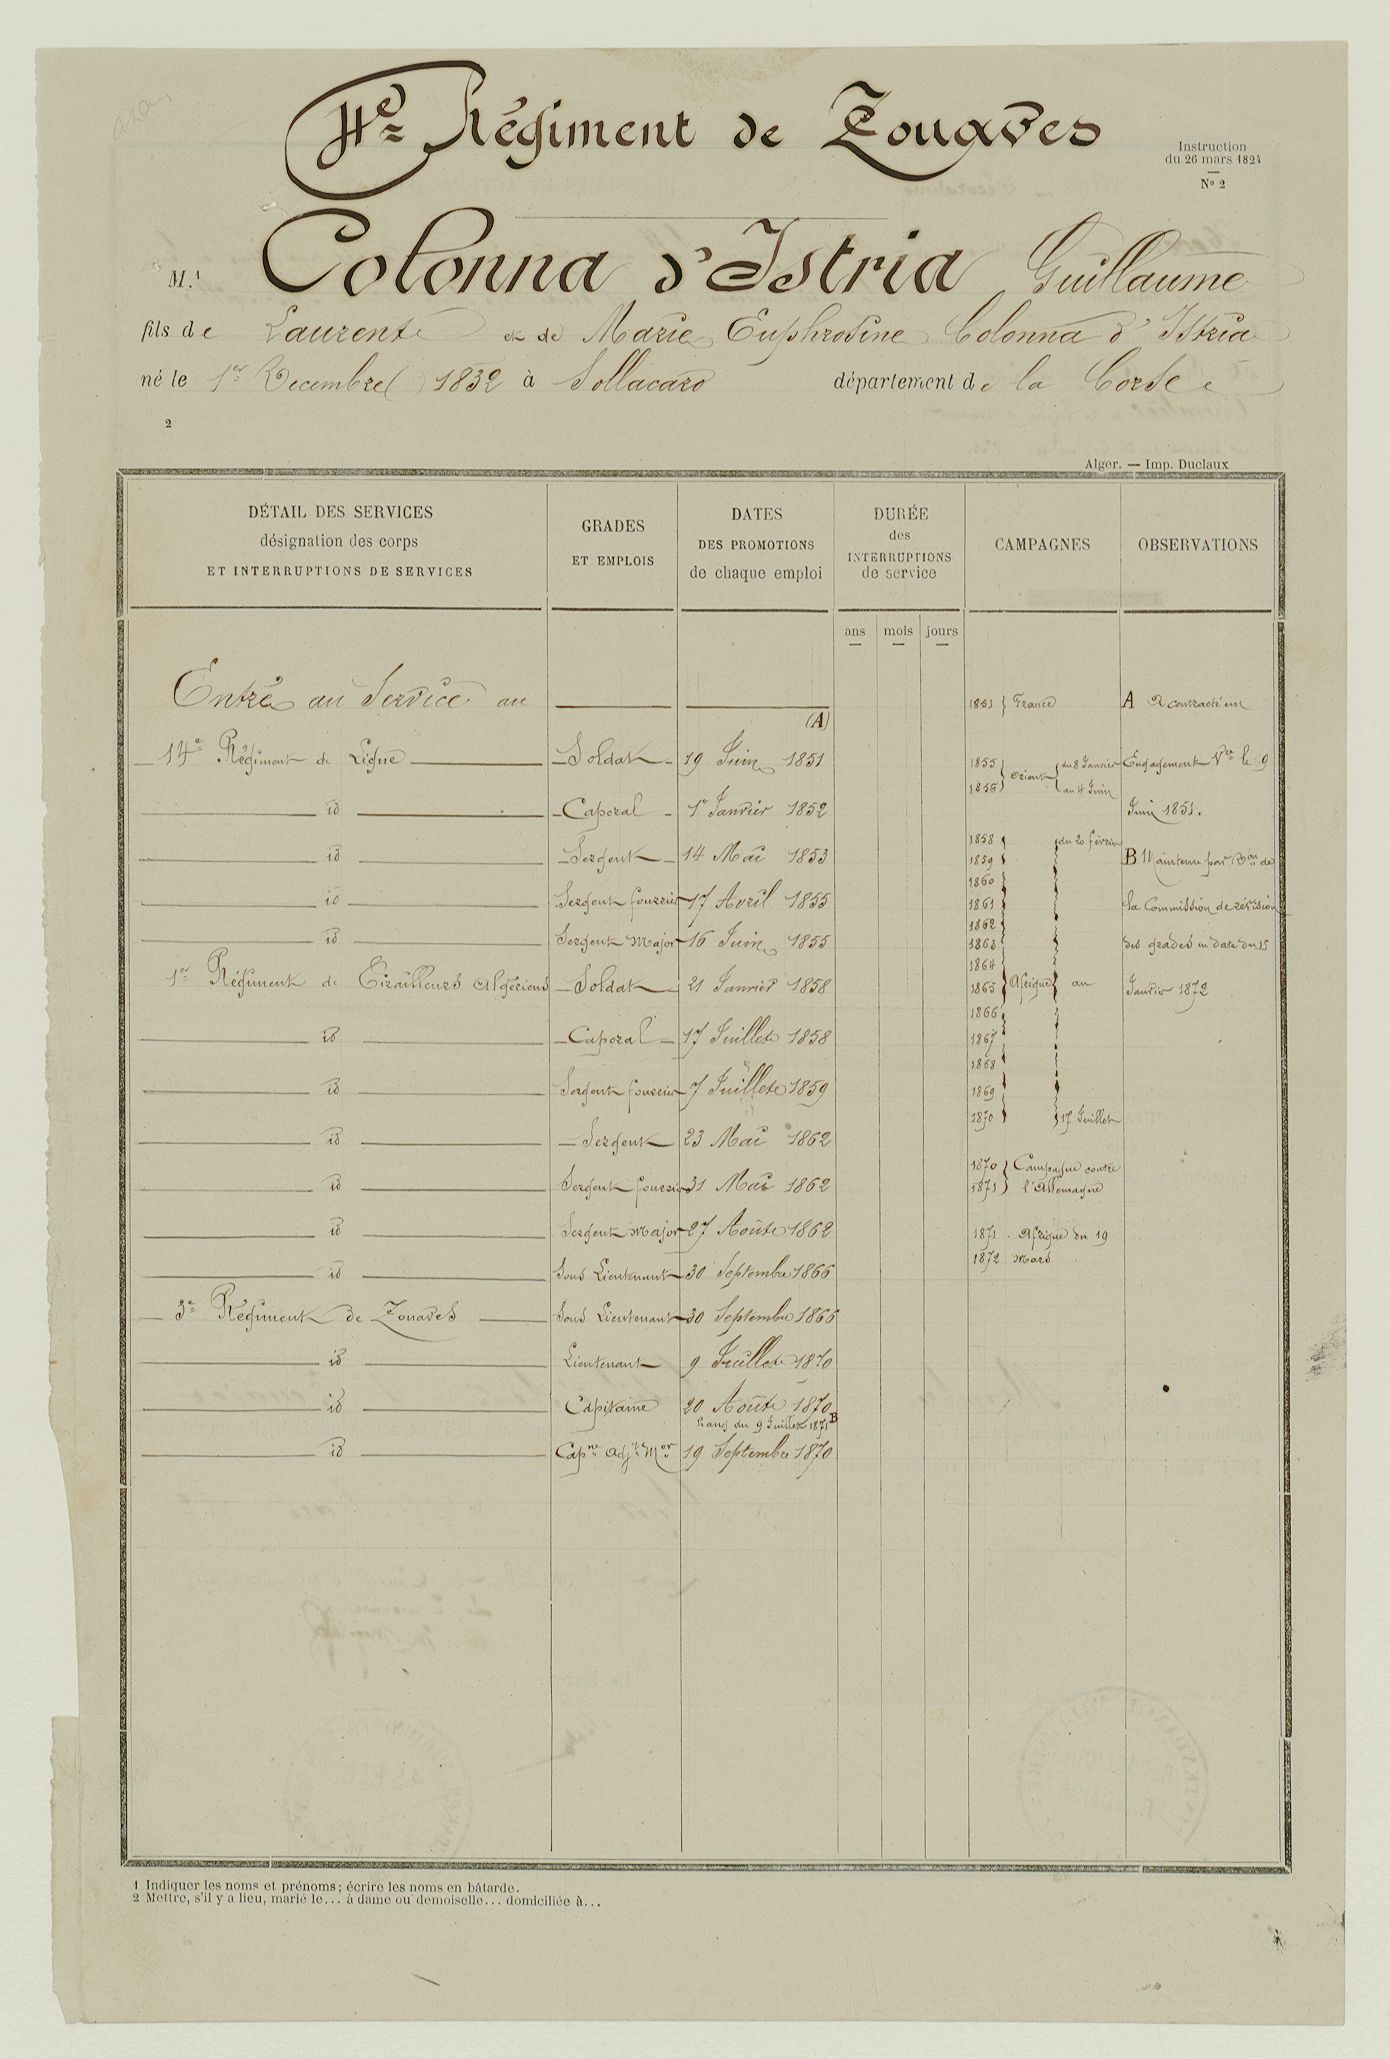 4e Régiment de Zouaves
Instruction
du 26 mars 1824
N° 2
M.1 Colonna d'Istria Guillaume
fils de Laurent et de Marie Euphrosine Colonna d'Istria
né le 1er Decembre 1832 à Sollacaro département de la Corse
2
Alger. — Imp. Duclaux
DÉTAIL DES SERVICES
désignation des corps
ET INTERRUPTIONS DE SERVICES
GRADES
ET EMPLOIS
DATES
DES PROMOTIONS
de chaque emploi
DURÉE
des
INTERRUPTIONS
de service
CAMPAGNES
OBSERVATIONS
ans mois jours
Entré au Service au
(A)
14e Régiment de Ligne Soldat 19 Juin 1851
id Caporal 1er Janvier 1852
id Sergent 14 Mai 1853
id Sergent fourrier 17 Avril 1855
id Sergent Major 16 Juin 1855
1er Régiment de Tirailleurs Algériens Soldat 21 Janvier 1858
id Caporal 17 Juillet 1858
id Sergent fourrier 7 Juillet 1859
id Sergent 23 Mai 1862
id Sergent fourrier 31 Mai 1862
id Sergent Major 27 Août 1862
id Sous Lieutenant 30 Septembre 1866
3e Régiment de Zouaves Sous Lieutenant 30 Septembre 1866
id Lieutenant 9 Juillet 1870
id Capitaine 20 Août 1870
Rang du 9 Juillet 1871 B
id Capne Adjt Mor 19 Septembre 1870
1851 } France
1855
1856 } Orient { du 8 Janvier
au 4 Juin
1858 du 20 février
1859
1860
1861
1862
1863
1864
1865 Afrique au
1866
1867
1868
1869
1870 17 Juillet
1870 } Campagne contre
1871 } l'Allemagne
1871 Afrique du 19
1872 Mars
A A contracté un
Engagement Vre le 9
Juin 1851.
B Maintenu par Don de
la Commission de révision
des grades en date du 15
Janvier 1872
1 Indiquer les noms et prénoms; écrire les noms en bâtarde.
2 Mettre, s'il y a lieu, marié le... à dame ou demoiselle... domiciliée à...